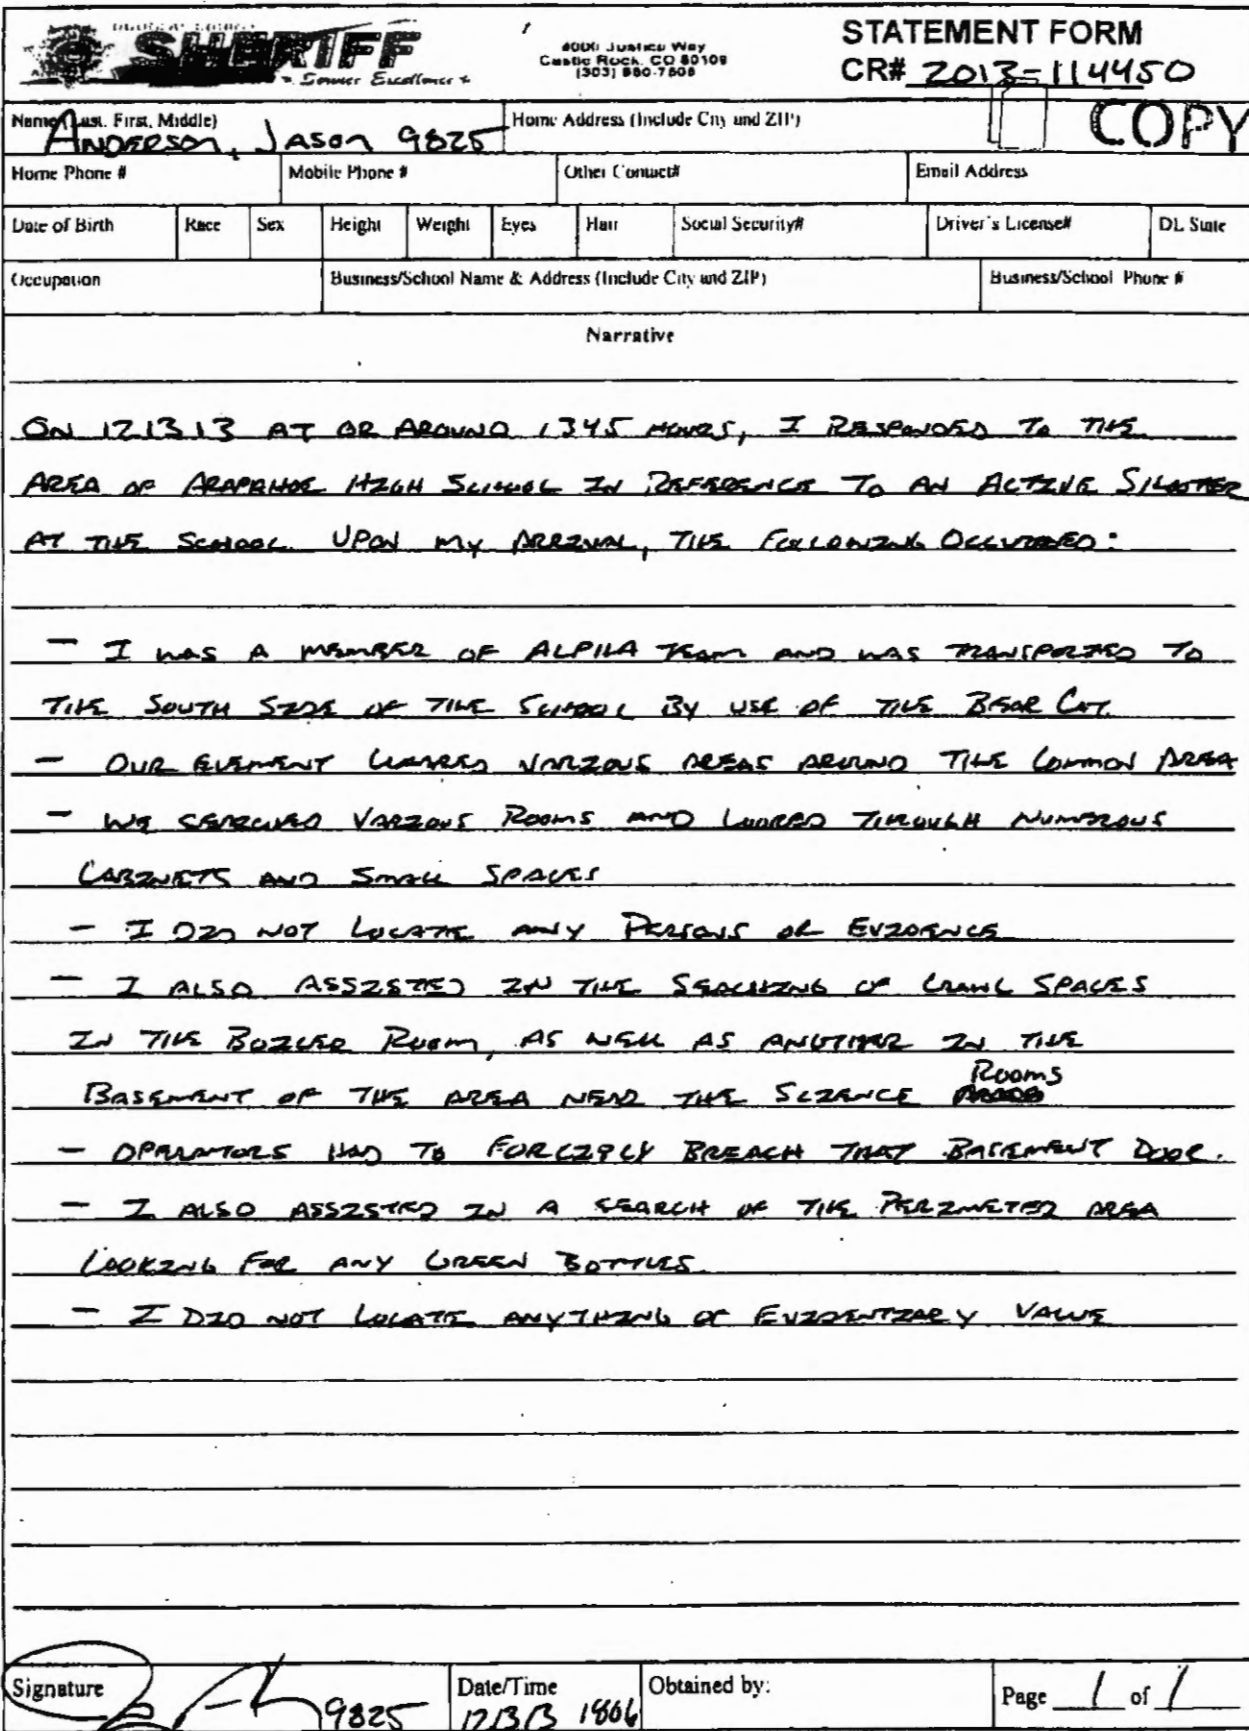 SHERIFF
4000 Justice Way
Castle Rock, CO 80109
STATEMENT FORM
CR# 2013-114450
COPY
Name (Last, First, Middle)
ANDERSON, JASON 9825
Home Address (Include City and ZIP)
Home Phone #
Mobile Phone #
Other Contact#
Email Address
Date of Birth
Race
Sex
Height
Weight
Eyes
Hair
Social Security#
Driver's License#
DL State
Occupation
Business/School Name & Address (Include City and ZIP)
Business/School Phone #
Narrative
ON 121313 AT OR AROUND 1345 HOURS, I RESPONDED TO THE
AREA OF ARAPAHOE HIGH SCHOOL IN REFERENCE TO AN ACTIVE SHOOTER
AT THE SCHOOL. UPON MY ARRIVAL, THE FOLLOWING OCCURRED:
- I WAS A MEMBER OF ALPHA TEAM AND WAS TRANSPORTED TO
THE SOUTH SIDE OF THE SCHOOL BY USE OF THE BEAR CAT.
- OUR ELEMENT CLEARED VARIOUS AREAS AROUND THE COMMON AREA
- WE SEARCHED VARIOUS ROOMS AND LOOKED THROUGH NUMEROUS
CABINETS AND SMALL SPACES
- I DID NOT LOCATE ANY PERSONS OR EVIDENCE
- I ALSO ASSISTED IN THE SEACHING OF CRAWL SPACES
IN THE BOILER ROOM, AS WELL AS ANOTHER IN THE
BASEMENT OF THE AREA NEAR THE SCIENCE ROOMS
- OPERATORS HAD TO FORCIBLY BREACH THAT BASEMENT DOOR.
- I ALSO ASSISTED IN A SEARCH OF THE PERIMETER AREA
LOOKING FOR ANY GREEN BOTTLES.
- I DID NOT LOCATE ANYTHING OF EVIDENTIARY VALUE
Signature
9825
Date/Time
121313 1806
Obtained by:
Page 1 of 1